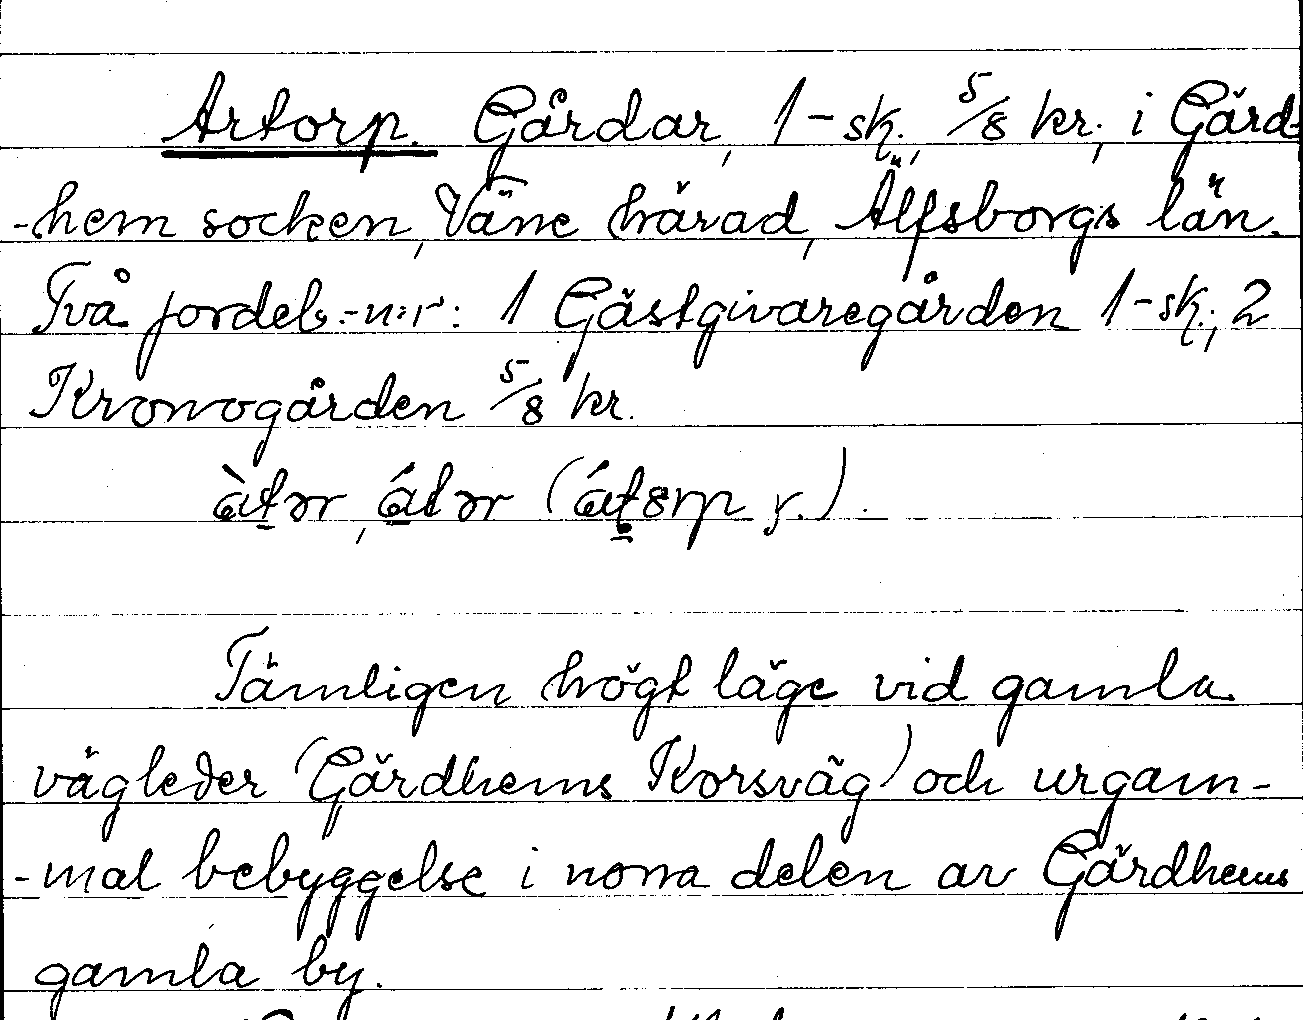 Artorp. Gårdar, 1-sk., 5/8 kr., i Gärd-
-hem socken, Väne härad, Älfsborgs län.
Två jordels-n:r: 1 Gästgivaregården 1-sk., 2
Kronogården 5/8 kr.
àtər, átər (átərp y.).
Tämligen högt läge vid gamla
vägleder (Gärdhems Korsväg) och urgam-
-mal bebyggelse i norra delen av Gärdhems
gamla by.